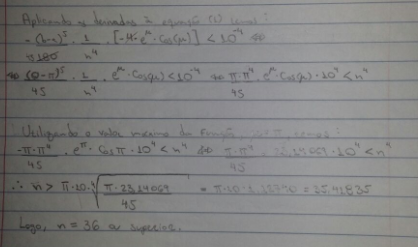 Aplicando as derivadas à equação (1) temos:
-(b-a)⁵/180 · 1/n⁴ · [-4·e^x · Cos(x)] < 10⁻⁴ ⇔
⇔ (0-π)⁵/45 · 1/n⁴ · e^x · Cos(x) < 10⁻⁴ ⇔ π·π⁴/45 · e^x · Cos(x) · 10⁴ < n⁴
Utilizando o valor máximo da função, temos:
-π·π⁴/45 · e^π · Cos π · 10⁴ < n⁴ ⇔ π·π⁴/45 · 23,14069 · 10⁴ < n⁴
∴ n > π·10 · ⁴√(π·23,14069/45) = π·10·
Logo, n = 36 o